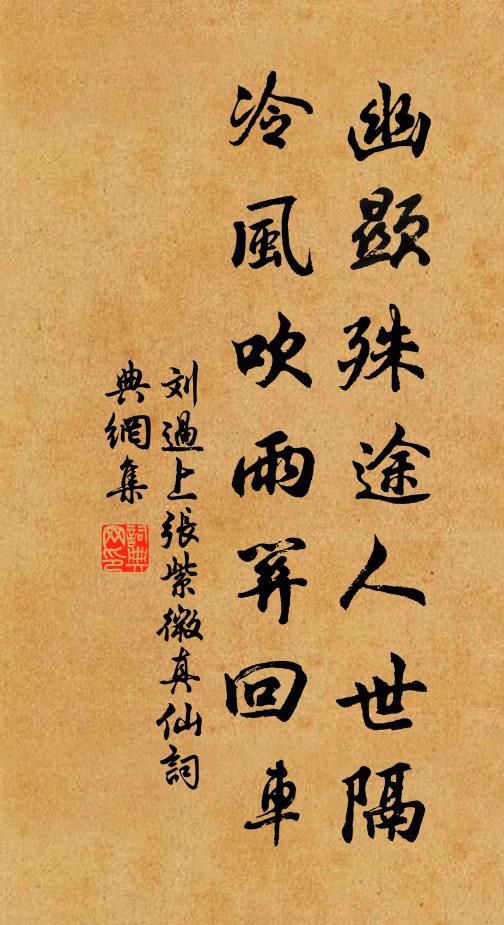 幽顯殊途人世隔
冷風吹雨回車
刘過上張紫微真仙詞
典網集
詞典
网印